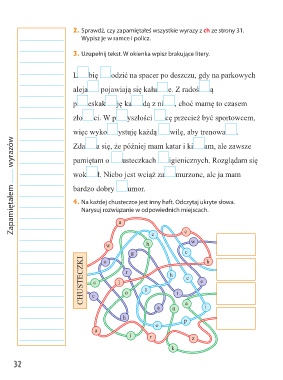 2. Sprawdź, czy zapamiętałeś wszystkie wyrazy z ch ze strony 31.
Wypisz je w ramce i policz.
3. Uzupełnij tekst. W okienka wpisz brakujące litery.
L bię odzić na spacer po deszczu, gdy na parkowych
aleja pojawiają się kału e. Z rados ą
p eskak ję ka dą z ni , choć mamę to czasem
zło ci. W p yszłości cę przecież być sportowcem,
więc wyko ystuję każdą wilę, aby trenowa .
Zda a się, że później mam katar i ki am, ale zawsze
pamiętam o usteczkach igienicznych. Rozglądam się
wok ł. Niebo jest wciąż za murzone, alc ja mam
bardzo dobry umor.
4. Na każdej chusteczce jest inny haft. Odczytaj ukryte słowa.
Narysuj rozwiązanie w odpowiednich miejscach.
Zapamiętałem wyrazów
CHUSTECZKI
32